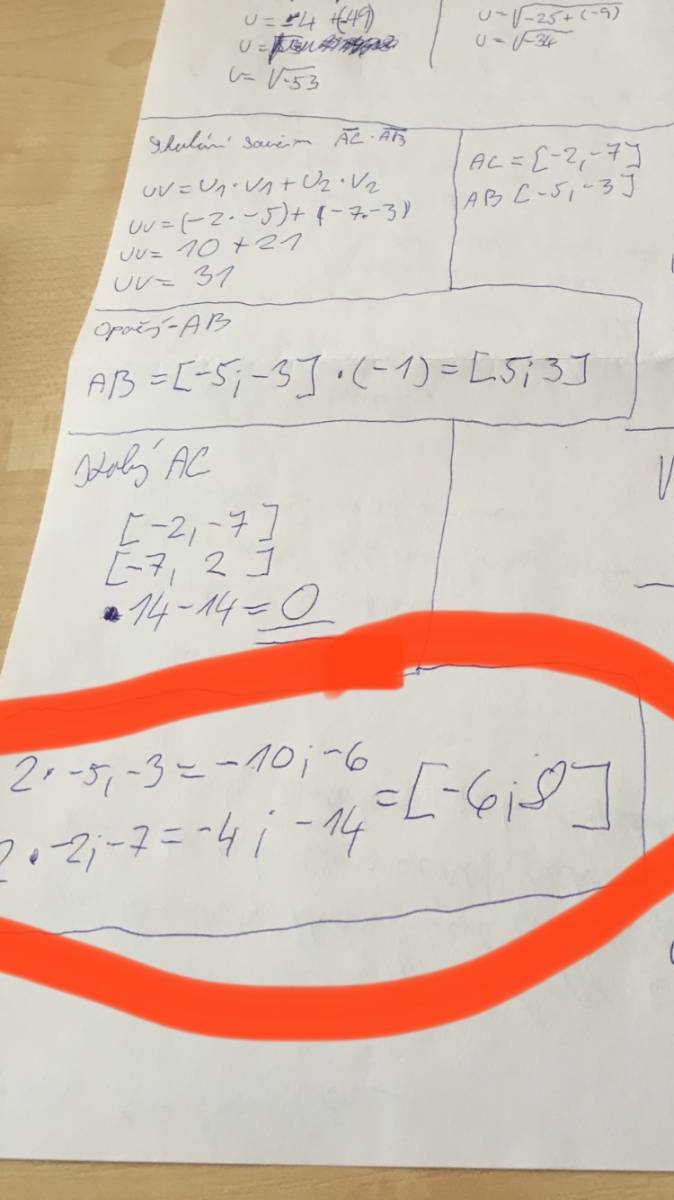 U = -4 + (-49)
U =
U = √-53
U = √-25 + (-9)
U = √-34
Skalární součin AC · AB
UV = U1 · V1 + U2 · V2
UV = (-2 · -5) + (-7 · -3)
UV = 10 + 21
UV = 31
AC = [-2, -7]
AB [-5, -3]
Opačný -AB
AB = [-5; -3] · (-1) = [5; 3]
Kolmý AC
[-2, -7]
[-7, 2]
14 - 14 = 0
2 · -5, -3 = -10; -6
2 · -2; -7 = -4; -14
= [-6; 8]